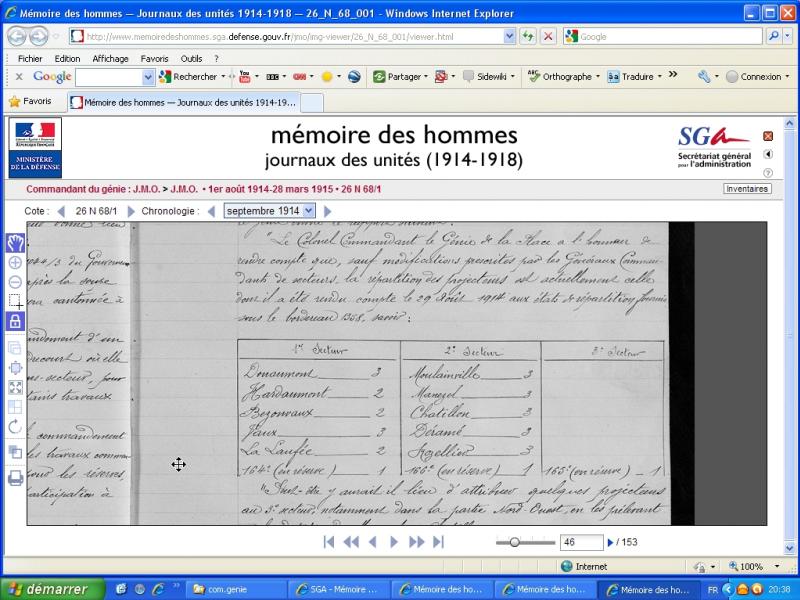 Mémoire des hommes — Journaux des unités 1914-1918 — 26_N_68_001 - Windows Internet Explorer
http://www.memoiredeshommes.sga.defense.gouv.fr/jmo/img-viewer/26_N_68_001/viewer.html
Google
Fichier Edition Affichage Favoris Outils ?
x Google Rechercher Partager Sidewiki Orthographe Traduire Connexion
Favoris Mémoire des hommes — Journaux des unités 1914-19...
mémoire des hommes
journaux des unités (1914-1918)
MINISTÈRE
DE LA DÉFENSE
SGA
Secrétariat général
pour l'administration
Commandant du génie : J.M.O. > J.M.O. • 1er août 1914-28 mars 1915 • 26 N 68/1
Inventaires
Cote : 26 N 68/1 Chronologie : septembre 1914
"Le Colonel Commandant le Génie de la Place a l'honneur de
rendre compte que, sauf modifications prescrites par les Généraux Comman-
dants de secteurs, la répartition des projecteurs est actuellement celle
dont il a été rendu compte le 29 Août 1914 aux états de répartition fournis
sous le bordereau 1358, savoir :
1er Secteur 2e Secteur 3e Secteur
Douaumont 3 Moulainville 3
Hardaumont 2 Manezel 3
Bezonvaux 2 Chatillon 3
Vaux 3 Déramé 3
La Laufée 2 3
164e (en réserve) 1 166e (en réserve) 1 165e (en réserve) 1
"Peut-être y aurait-il lieu d'attribuer quelques projecteurs
au 3e secteur, notamment dans la partie Nord Ouest, en les prélevant
du Gouverneur
après la soupe
cantonnée à
d'un
où elle
-secteur, pour
travaux
commandement
les travaux
pour les réserves,
participation à
46 / 153
Internet 100%
démarrer com.genie SGA - Mémoire ... Mémoire des ho... Mémoire des ho... Mémoire des ho... FR 20:38